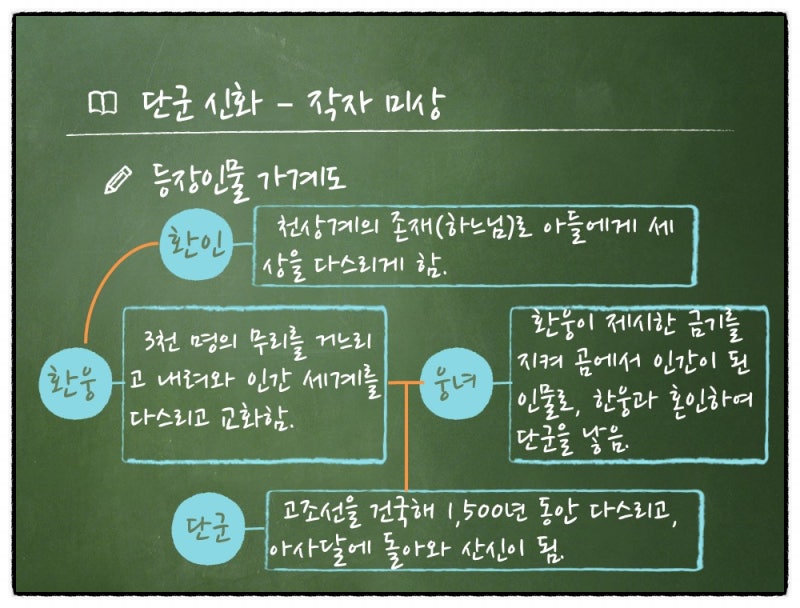 단군 신화 - 작자 미상
등장인물 가계도
환인
천상계의 존재(하느님)로 아들에게 세
상을 다스리게 함.
환웅
3천 명의 무리를 거느리
고 내려와 인간 세계를
다스리고 교화함.
웅녀
환웅이 제시한 금기를
지켜 곰에서 인간이 된
인물로, 한웅과 혼인하여
단군을 낳음.
단군
고조선을 건국해 1,500년 동안 다스리고,
아사달에 돌아와 산신이 됨.